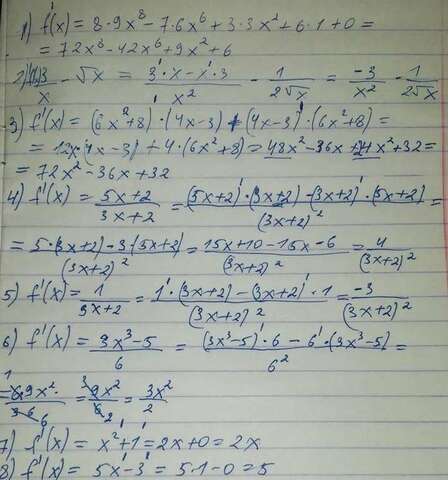 1) f'(x) = 8·9x⁸ - 7·6x⁶ + 3·3x² + 6·1 + 0 =
= 72x⁸ - 42x⁶ + 9x² + 6
2) 3/x - √x = (3'·x - x'·3)/x² - 1/(2√x) = -3/x² - 1/(2√x)
3) f'(x) = (6x²+8)'·(4x-3) + (4x-3)'·(6x²+8) =
= 12x·(4x-3) + 4·(6x²+8) = 48x² - 36x + 24x² + 32 =
= 72x² - 36x + 32
4) f'(x) = (5x+2)/(3x+2) = ((5x+2)'·(3x+2) - (3x+2)'·(5x+2))/(3x+2)² =
= (5·(3x+2) - 3·(5x+2))/(3x+2)² = (15x+10-15x-6)/(3x+2)² = 4/(3x+2)²
5) f'(x) = 1/(3x+2) = (1'·(3x+2) - (3x+2)'·1)/(3x+2)² = -3/(3x+2)²
6) f'(x) = (3x³-5)/6 = ((3x³-5)'·6 - 6'·(3x³-5))/6² =
= 6·9x²/36 = 9x²/6 = 3x²/2
7) f'(x) = x²' + 1' = 2x + 0 = 2x
8) f'(x) = 5x' - 3' = 5·1 - 0 = 5